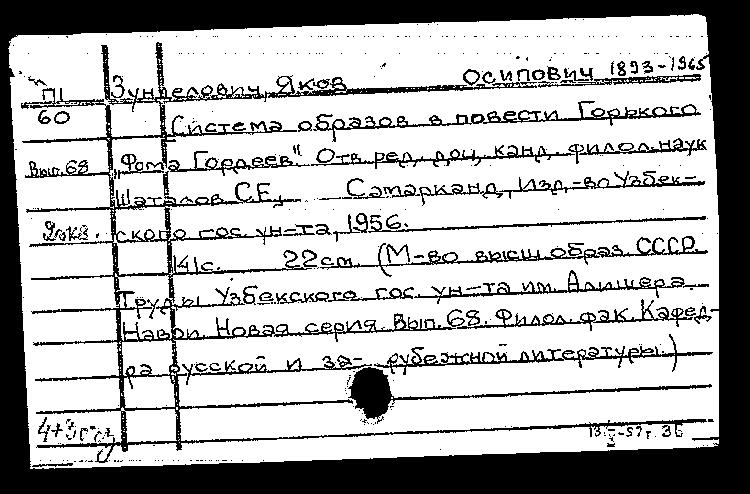 П1 Зунделович, Яков Осипович 1893-1965
60 Система образов в повести Горького
Вып.68 „Фома Гордеев". Отв.ред. доц, канд. филол.наук
Шаталов С.Е., Самарканд, Изд-во Узбек-
2экз. ского гос. ун-та, 1956.
141с. 22см. (М-во высш.образ. СССР.
Труды Узбекского гос. ун-та им. Алишера
Навои. Новая серия. Вып.68. Филол.фак. Кафед-
ра русской и за- рубежной литературы.)
4+3
-57г. 36